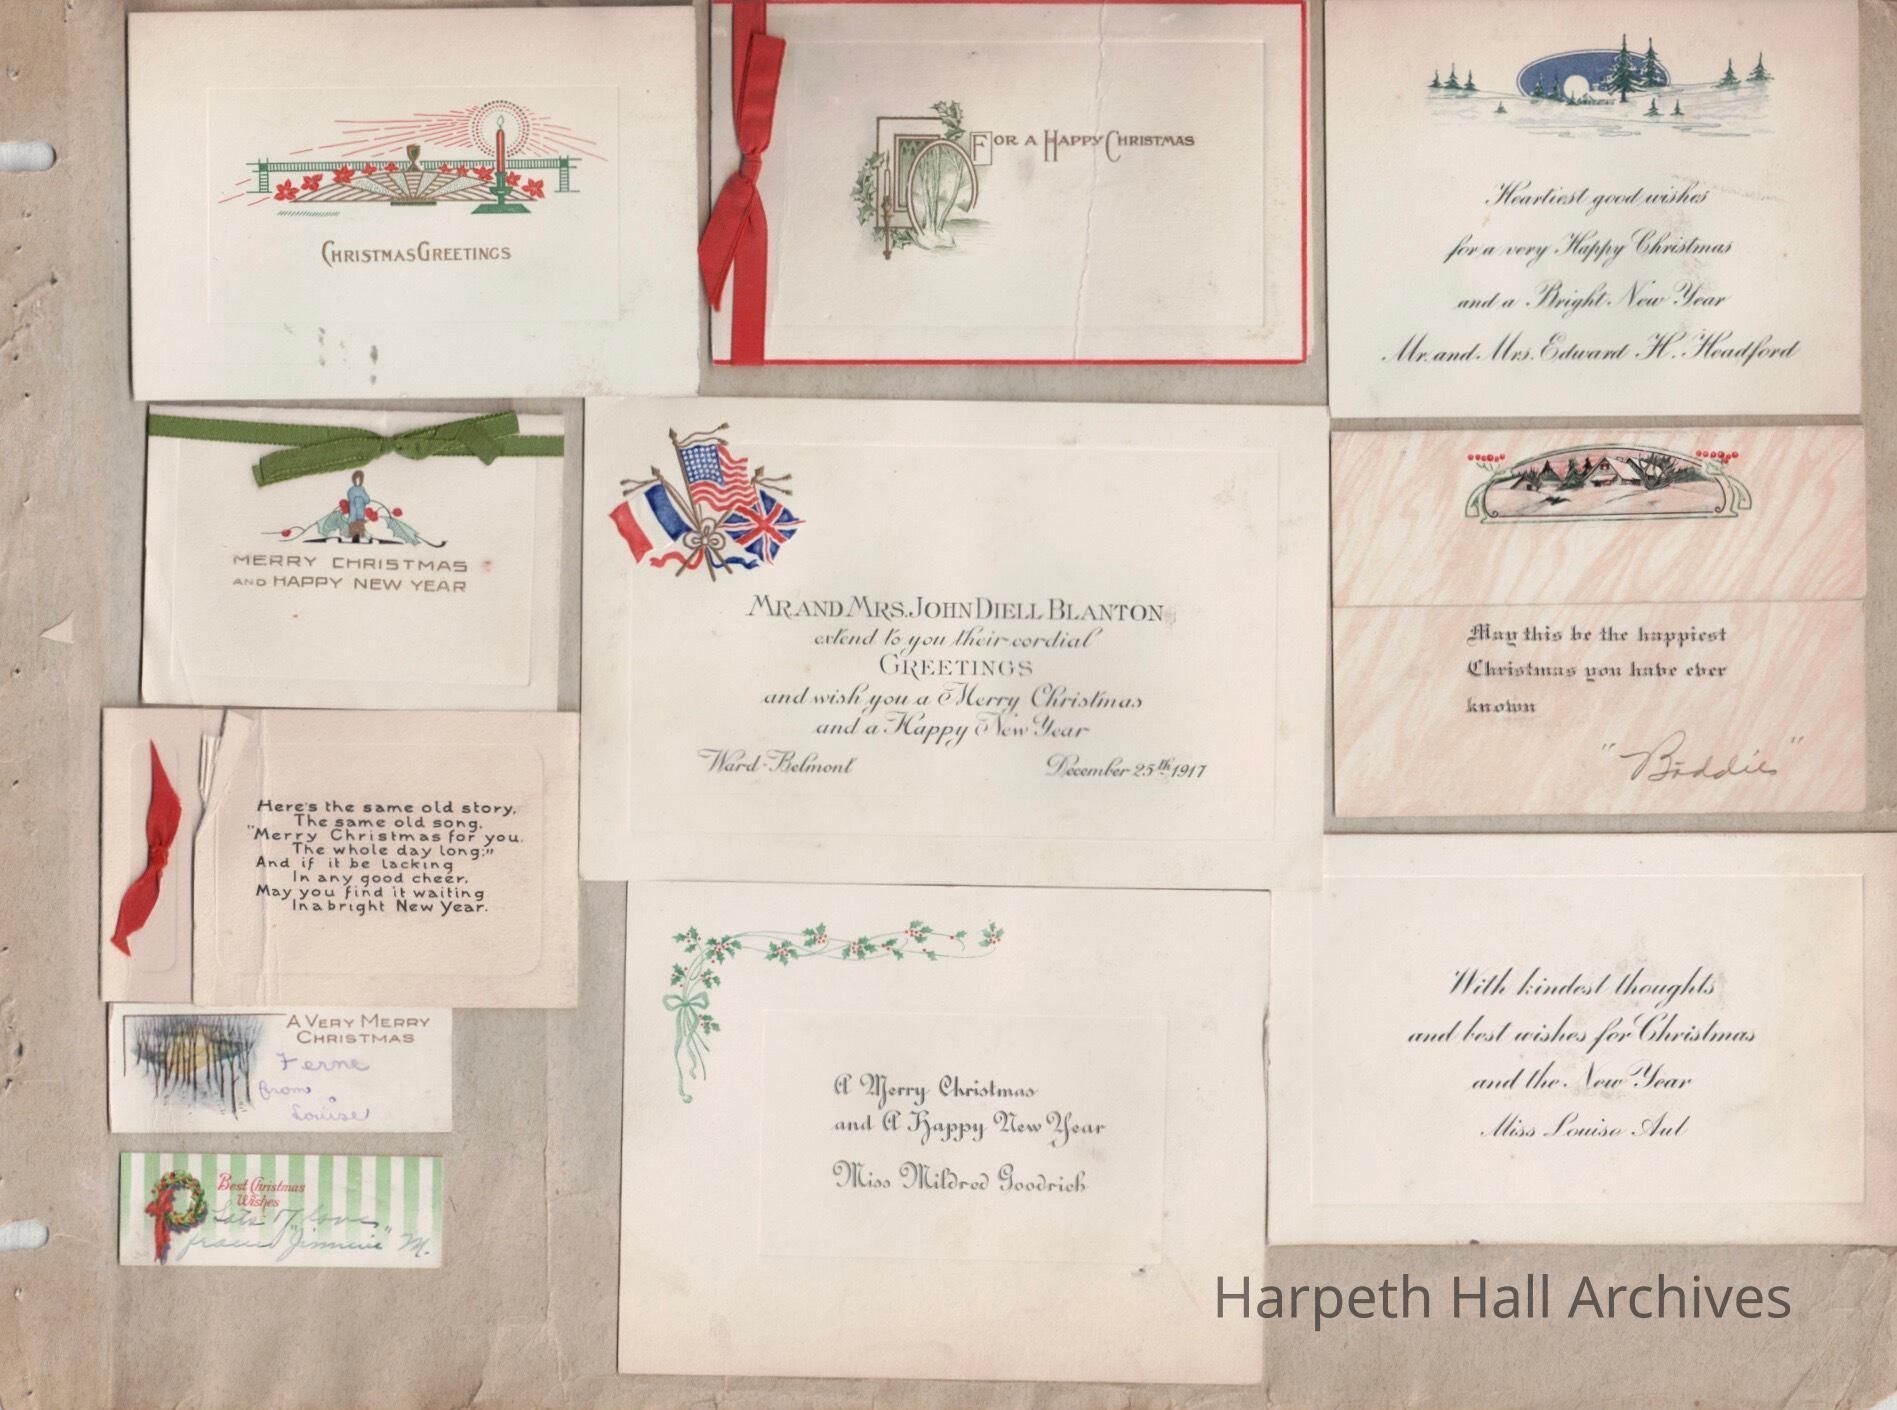 CHRISTMAS GREETINGS
FOR A HAPPY CHRISTMAS
Heartiest good wishes
for a very Happy Christmas
and a Bright New Year
Mr. and Mrs. Edward H. Headford
MERRY CHRISTMAS
AND HAPPY NEW YEAR
MR. AND MRS. JOHN DIELL BLANTON
extend to you their cordial
GREETINGS
and wish you a Merry Christmas
and a Happy New Year
Ward-Belmont December 25th 1917
May this be the happiest
Christmas you have ever
known
"Boddie"
Here's the same old story,
The same old song,
"Merry Christmas for you,
The whole day long;"
And if it be lacking
In any good cheer,
May you find it waiting
In a bright New Year.
A VERY MERRY
CHRISTMAS
Ferne
from
Louise
Best Christmas
Wishes
Lots of love
from "Jimmie" M.
A Merry Christmas
and A Happy New Year
Miss Mildred Goodrich
With kindest thoughts
and best wishes for Christmas
and the New Year
Miss Louise Aul
Harpeth Hall Archives